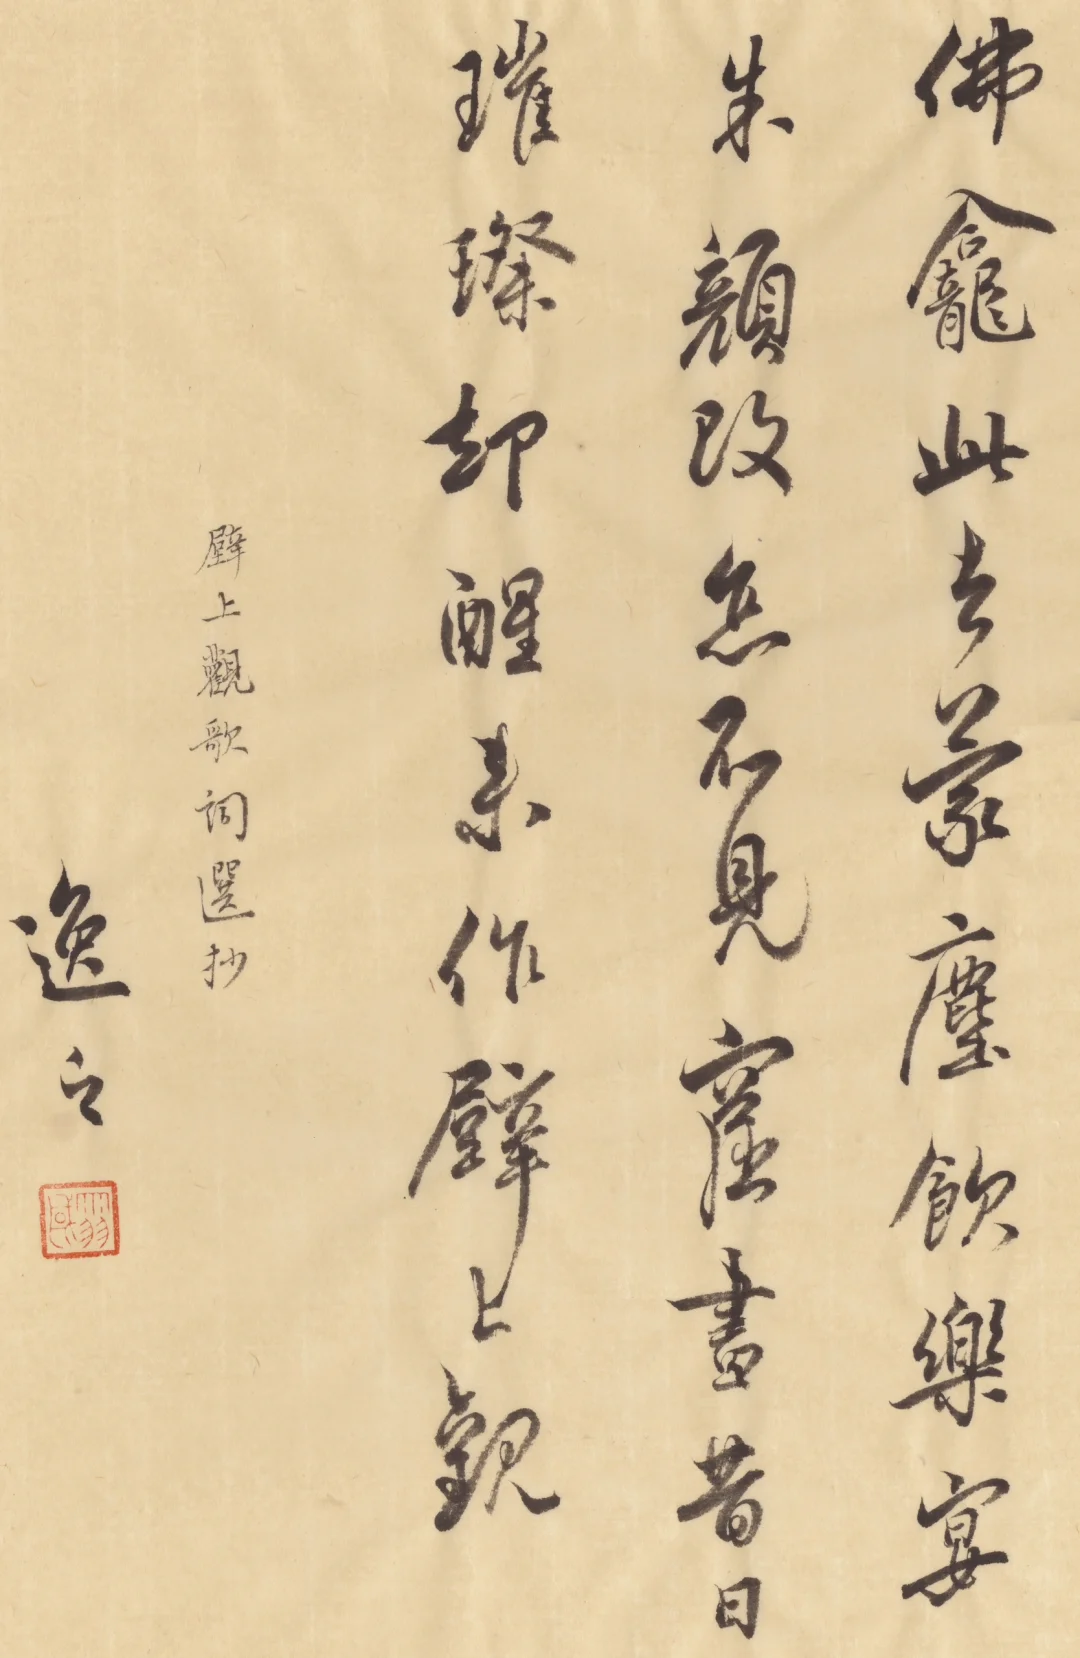 佛龕此去蒙塵飲樂宴
朱顏改怎不見窟畫昔日
璀璨却醒来作壁上觀
壁上觀歌詞選抄
逸之